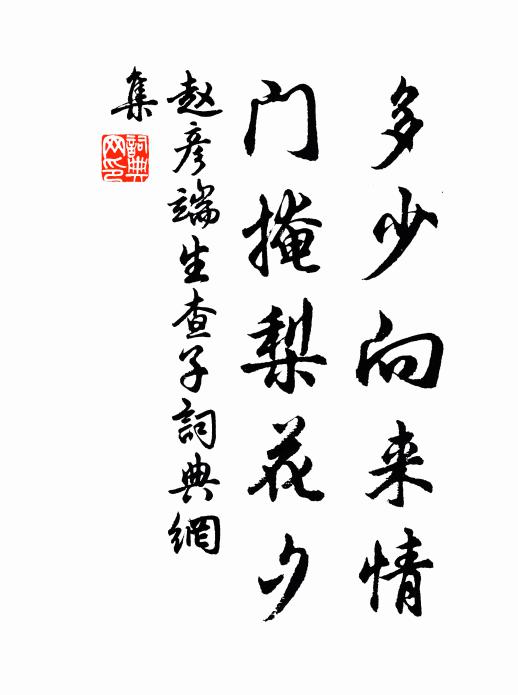 多少向来情
门掩梨花夕
赵彦端生查子詞典網
集
詞典
网印